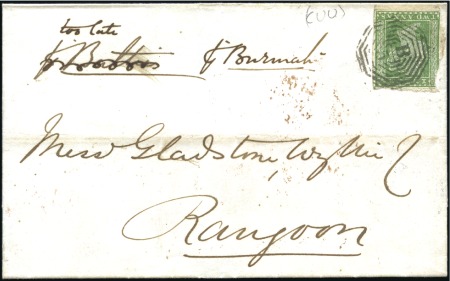 too late
TWO ANNAS
p Burmah
B
Messrs Gladstone Wyllie &
Rangoon